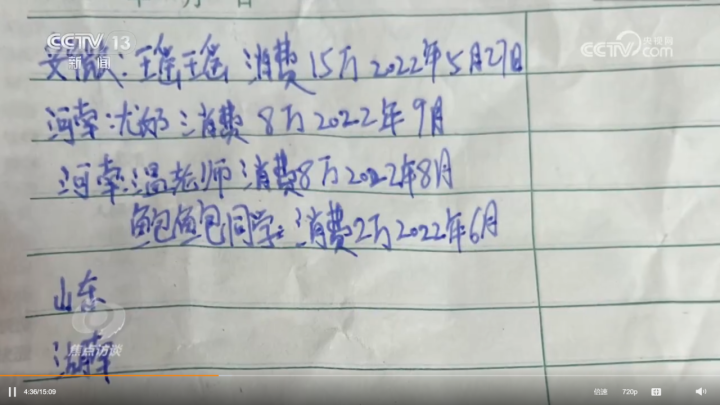 年 月 日
CCTV 13
新闻
央视网
CCTV.com
安徽:王瑶王瑶 消费15万 2022年5月27日
河南:尤娜:消费 8万 2022年 9月
河南:温老师 消费8万 2022年8月
鲍鲍同学:消费2万 2022年6月
山东
焦点访谈
湖南
4:36/15:09
倍速
720p